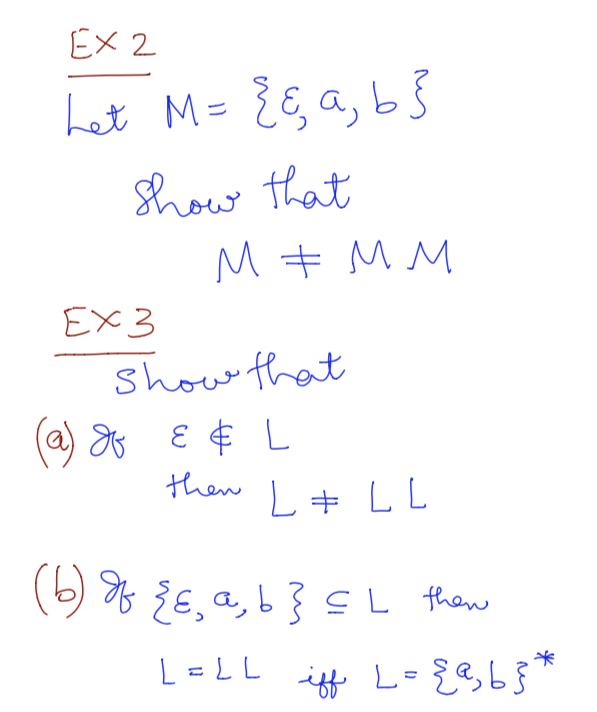 EX 2
Let M = {ε, a, b}
Show that
M ≠ M M
EX 3
Show that
(a) If ε ∉ L
then L ≠ L L
(b) If {ε, a, b} ⊆ L then
L = L L iff L = {a, b}*